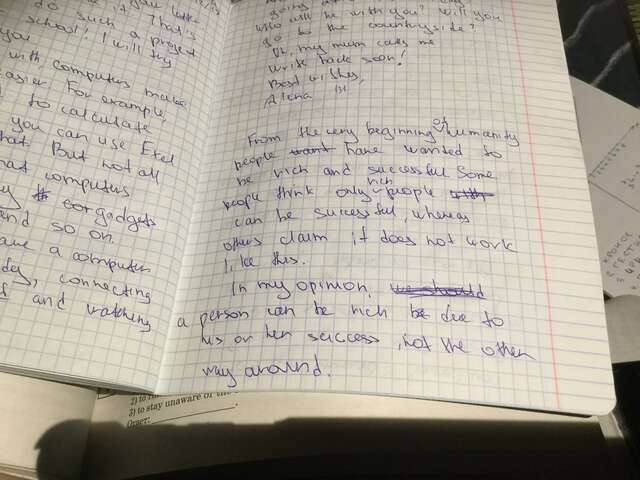 you
do such a project
it. That's
school! I will try
you
with computers make
easier. For example,
to calculate
you can use Exel
that. But not all
that computers
or gadgets
and so on.
have a computer
connecting
and watching
going
Who will be with you? Will you
go to the countryside?
Oh, my mum calls me
Write back soon!
Best wishes,
Alena
131
From the very beginning of humanity
people want have wanted to
be rich and successful. Some
people think only rich people with
can be sucessful, whereas
others claim it does not work
like this.
In my opinion, we should
a person can be rich be due to
his or her success, not the other
way around.
2) to
3) to stay unaware of the
Ответ: